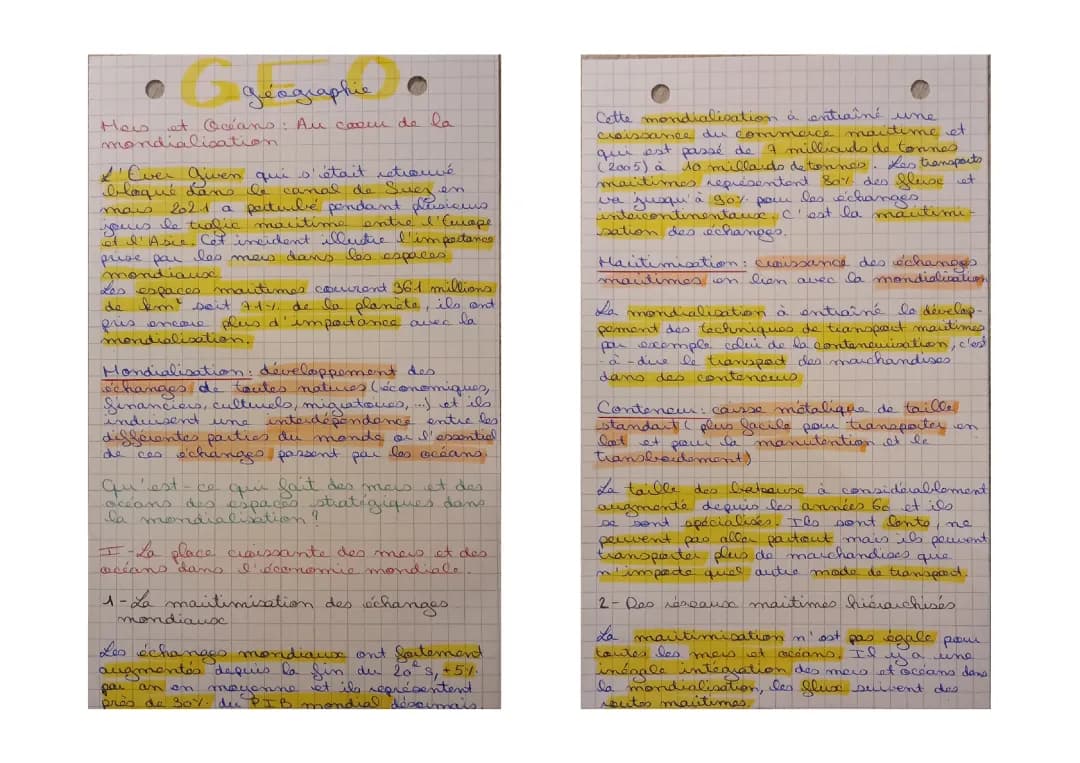 GEO
géographie
Mers et Océans : Au coeur de la
mondialisation
L'Ever Given qui s'était retrouvé
bloqué dans le canal de Suez en
mars 2021 a perturbé pendant plusieurs
jours le trafic maritime entre l'Europe
et l'Asie. Cet incident illustre l'importance
prise par les mers dans les espaces
mondiaux.
Les espaces maritimes couvrent 361 millions
de km² soit 71% de la planète, ils ont
pris encore plus d'importance avec la
mondialisation.
Mondialisation : développement des
échanges de toutes natures (économiques,
financiers, culturels, migratoires, ...) et ils
induisent une interdépendance entre les
différentes parties du monde or l'essentiel
de ces échanges passent par les océans.
Qu'est-ce qui fait des mers et des
océans des espaces stratégiques dans
la mondialisation ?
I - La place croissante des mers et des
océans dans l'économie mondiale.
1 - La maritimisation des échanges
mondiaux
Les échanges mondiaux ont fortement
augmentés depuis la fin du 20e s, +5%
par an en moyenne et ils représentent
près de 30% du PIB mondial désormais.
Cette mondialisation à entraîné une
croissance du commerce maritime et
qui est passé de 7 milliards de tonnes
(2005) à 10 milliards de tonnes. Les transports
maritimes représentent 80% des fluxe et
va jusqu'à 90% pour les échanges
intercontinentaux, c'est la maritimi-
sation des échanges.
Maritimisation : croissance des échanges
maritimes en lien avec la mondialisation
La mondialisation à entraîné le dévelop-
pement des techniques de transport maritimes
par exemple celui de la conteneurisation, c'est
-à-dire le transport des marchandises
dans des conteneurs
Conteneur : caisse métalique de taille
standart (plus facile pour transporter en
lot et pour la manutention et le
transbordement)
La taille des bateaux à considérablement
augmenté depuis les années 60 et ils
se sont spécialisés. Ils sont lents, ne
peuvent pas aller partout mais ils peuvent
transporter plus de marchandises que
n'importe quel autre mode de transport.
2 - Des réseaux maritimes hiérarchisés
La maritimisation n'est pas égale pour
toutes les mers et océans. Il y a une
inégale intégration des mers et océans dans
la mondialisation, les flux suivent des
routes maritimes.